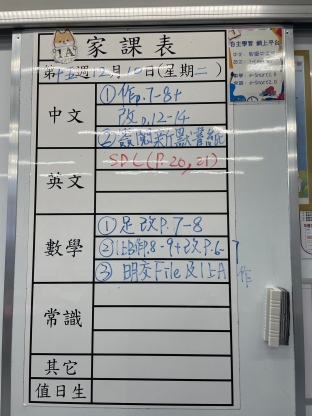 1A
家課表
第十五週12月10日(星期二)
中文
①作p.7-8+
改p.12-14
②簽閱新默書紙
英文
SDL(P.20,21)
數學
①足改P.7-8
8-9+改P.6-7
③明交File及1上A作
常識
其它
值日生
自主學習 網上平台